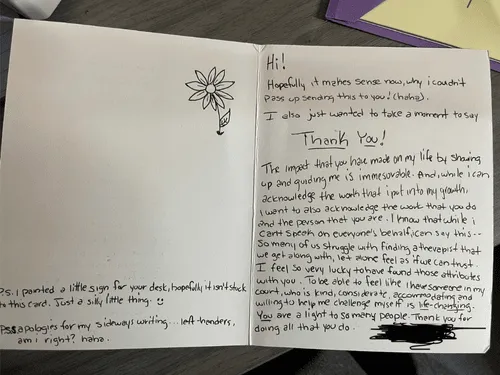 Hi!
Hopefully it makes sense now, why i couldn't
pass up sending this to you! (haha).
I also just wanted to take a moment to say
Thank You!
The impact that you have made on my life by showing
up and guiding me is immesurable. And, while i can
acknowledge the work that i put into my growth,
I want to also acknowledge the work that you do
and the person that you are. I know that while i
Can't speak on everyone's behalf, i can say this--
So many of us struggle with finding a therapist that
we get along with, let alone feel as if we can trust.
I feel so very lucky to have found those attributes
with you. To be able to feel like I have someone in my
court, who is kind, considerate, accommodating and
willing to help me challenge myself is life-changing.
You are a light to so many people. Thank you for
doing all that you do.
P.s. I painted a little sign for your desk, hopefully it isn't stuck
to this card. Just a silly little thing.
Pss apologies for my sideways writing... left-handers,
am i right? haha.